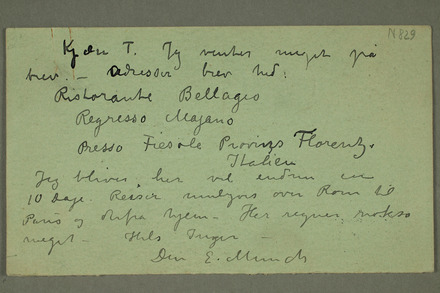 N 829
Kjære T. Jeg venter meget på
brev. – Adresser brev hid:
Ristorante Bellagio
Regresso Majano
Presso Fiesole Provinzs Florentz.
Italien
Jeg bliver her vel endnu en
10 Dage. Reiser muligvis over Rom til
Paris og derfra hjem – Her regner
meget – Hils Inger –
Din E. Munch